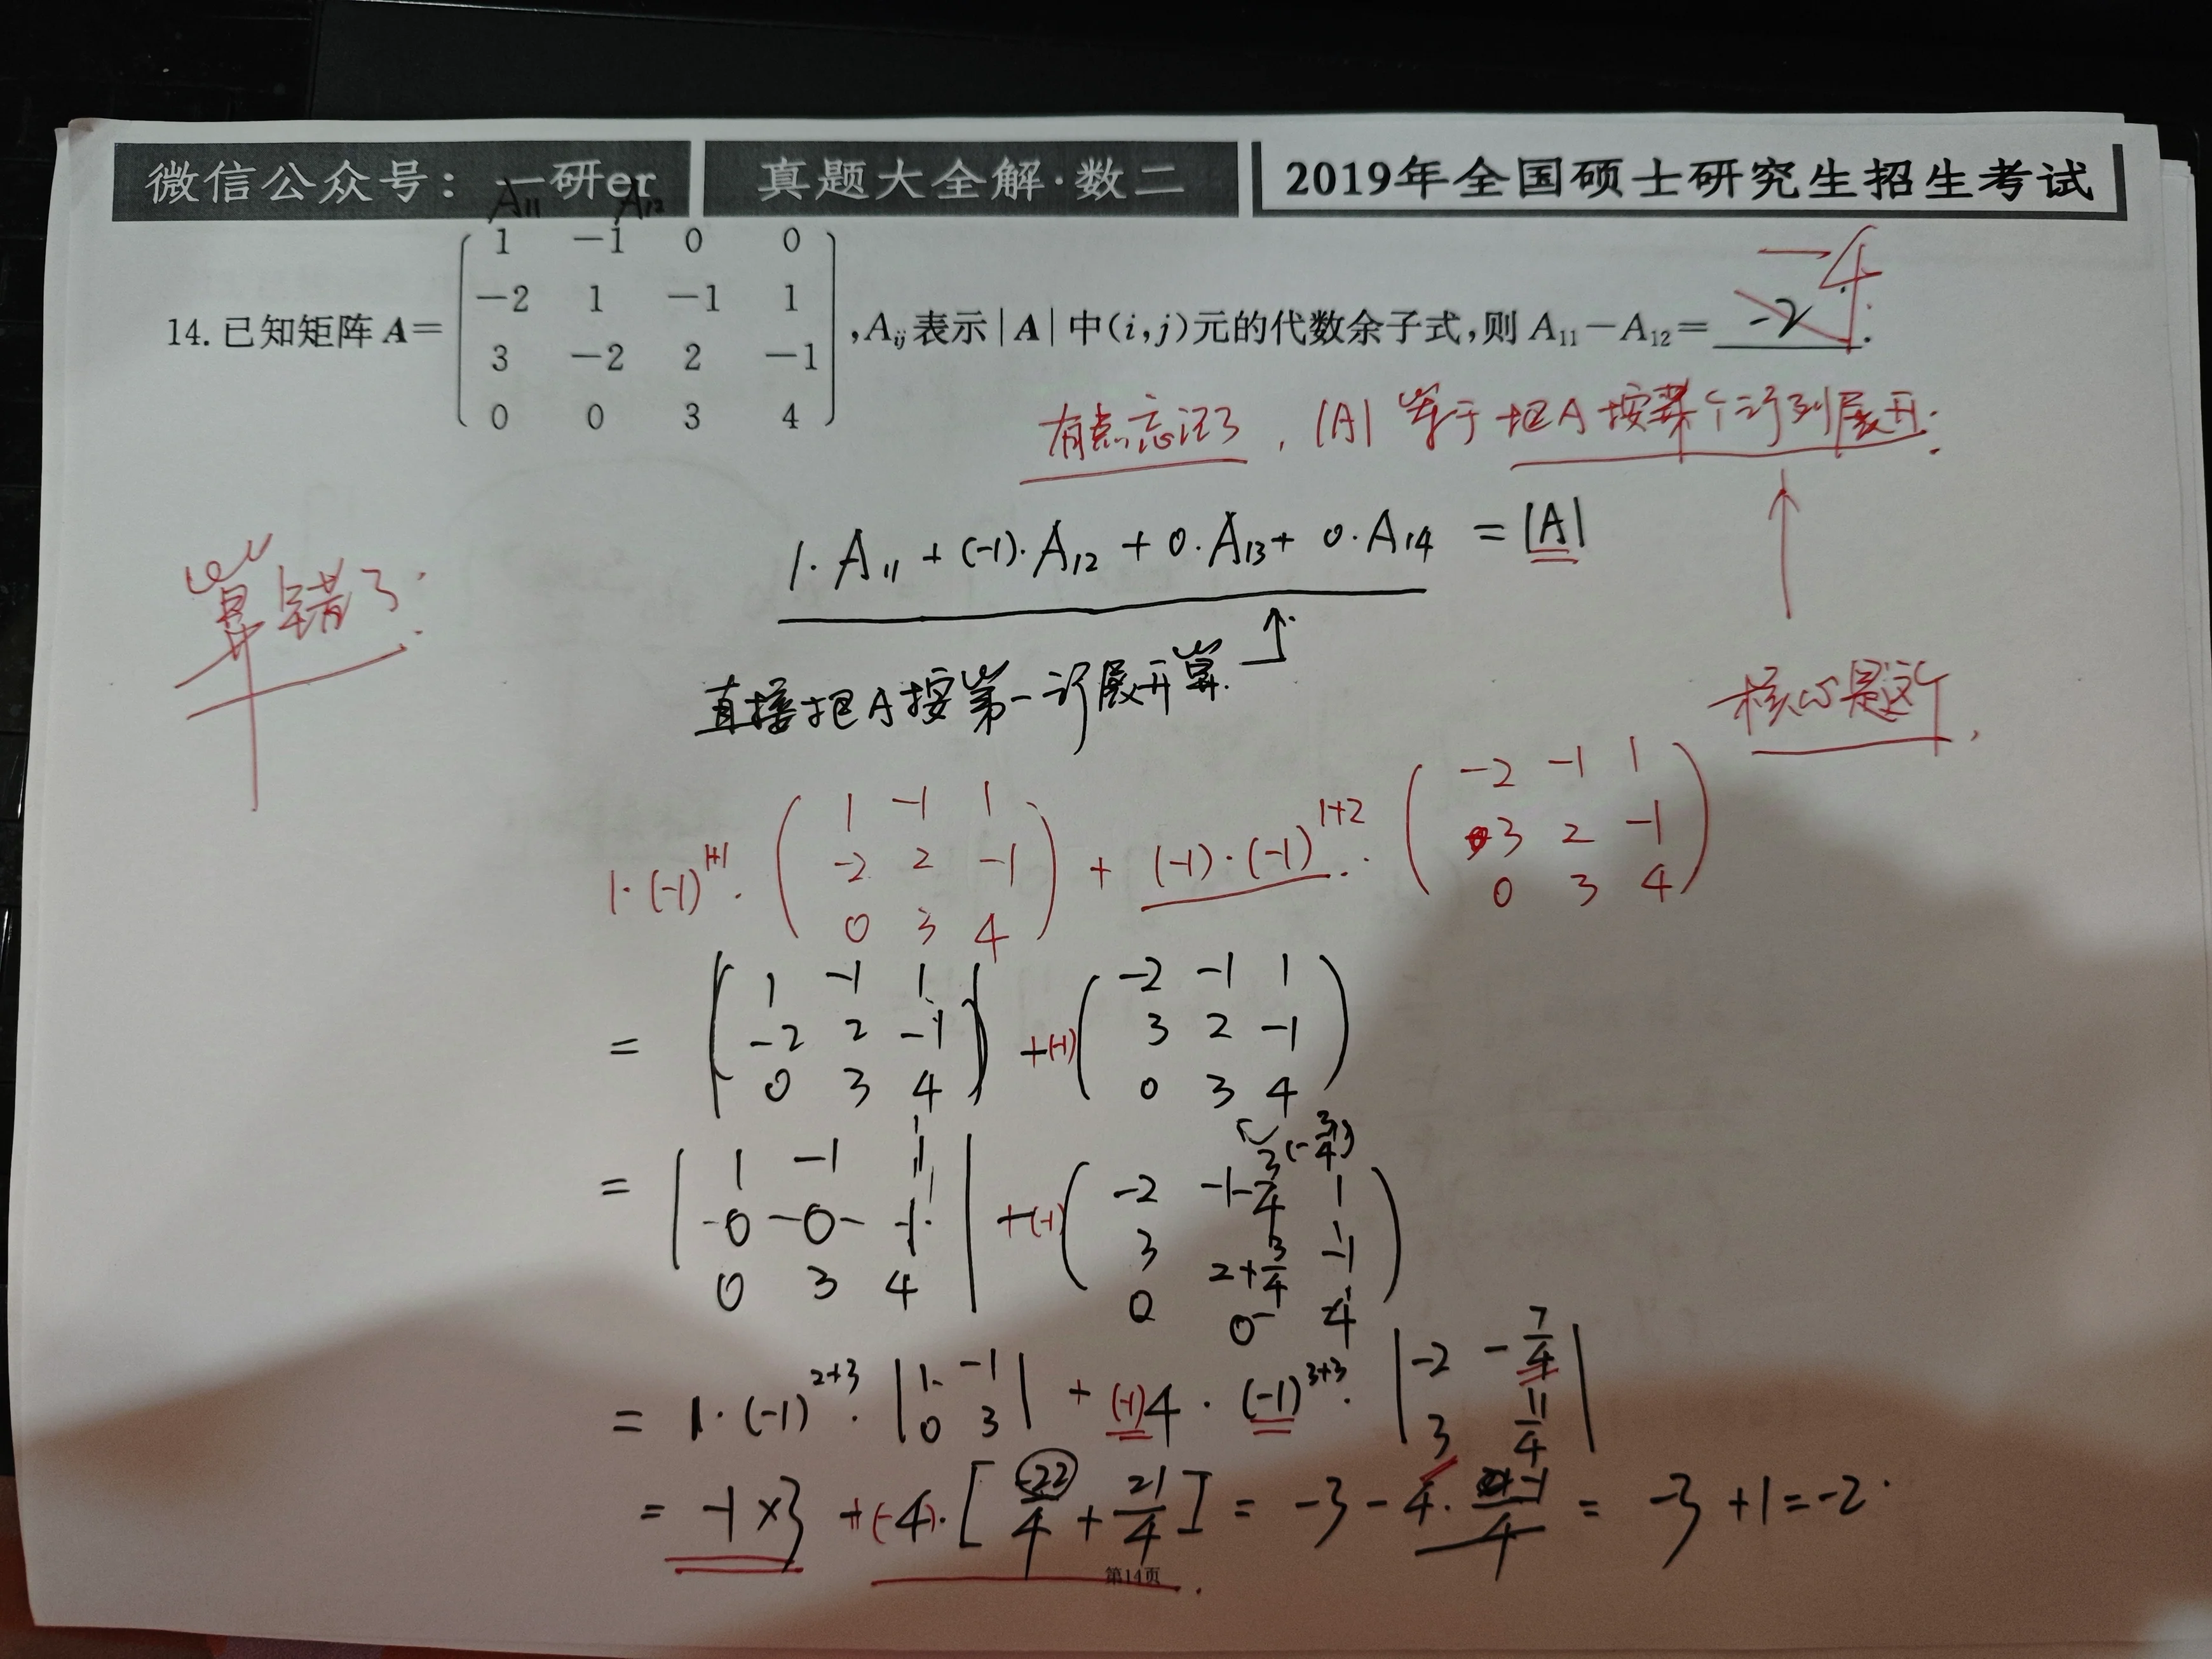 微信公众号：一研er 真题大全解·数二 2019年全国硕士研究生招生考试
A11 A12
1 -1 0 0
-2 1 -1 1
14. 已知矩阵 A= ,Aij 表示|A|中(i,j)元的代数余子式,则 A11-A12= -2 .
-4
3 -2 2 -1
0 0 3 4
有点忘记了，|A| 等于把A按某个行列展开.
1·A11+(-1)·A12+0·A13+0·A14 =|A|
算错了.
直接把A按第一行展开算.
核心是这个,
1·(-1)^1+1· ( 1 -1 1 -2 2 -1 0 3 4 ) + (-1)·(-1)^1+2· ( -2 -1 1 3 2 -1 0 3 4 )
= ( 1 -1 1 -2 2 -1 0 3 4 ) +(-1) ( -2 -1 1 3 2 -1 0 3 4 )
(-3/4)
= | 1 -1 1 -0 -0- -1 0 3 4 | +(-1) ( -2 -1-3/4 1 3 2+3/4 -1 0 0 4 )
= 1·(-1)^2+3· | 1 -1 0 3 | + (-1)4·(-1)^3+3· | -2 -7/4 3 11/4 |
= -1×3 +(-4)·[ -22/4 + 21/4 ] = -3-4· -1/4 = -3+1=-2.
第14页